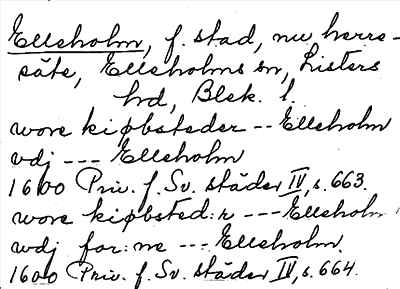 Ellsholm, f. stad, nu herre-
säte, Ellsholms sn, Listers
hrd, Blek. l.
wore kiøbsteder -- Ellsholm
vdj --- Ellsholm
1600 Priv. f. Sv. städer IV, s. 663.
wore kiøbsted:r --- Ellsholm
wdj for:ne --- Ellsholm.
1600 Priv. f. Sv. städer IV, s. 664.